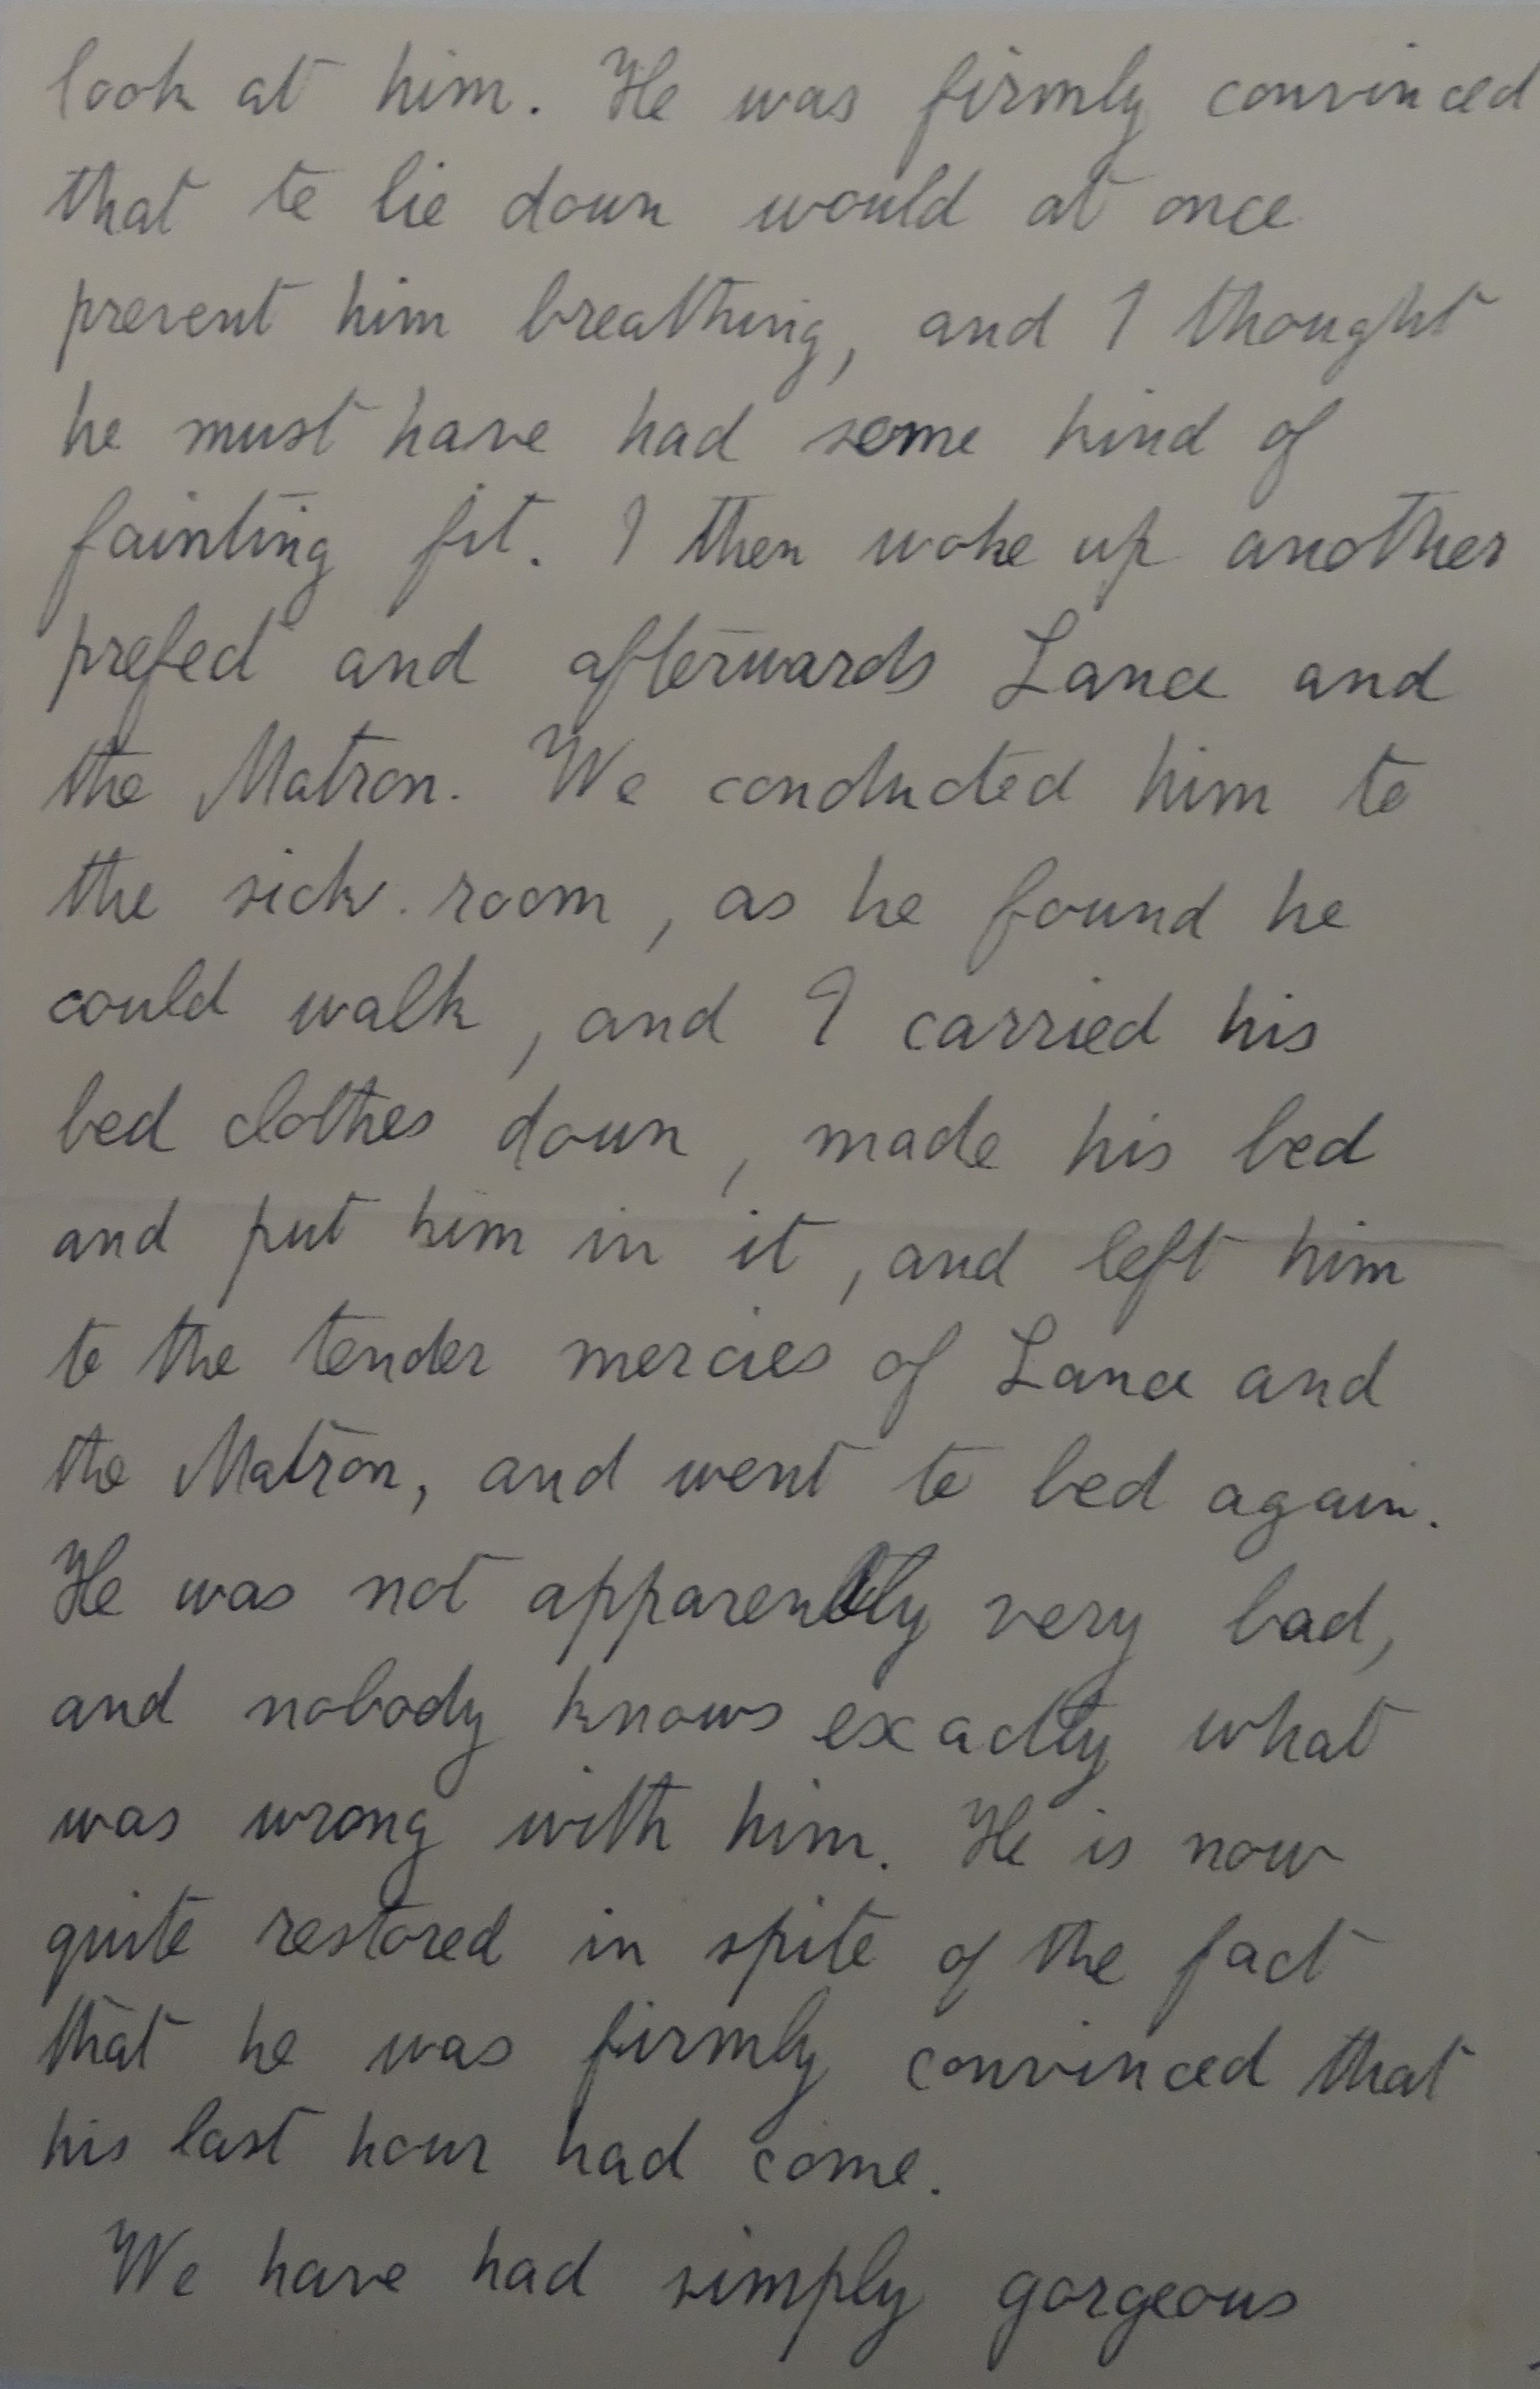 look at him. He was firmly convinced
that to lie down would at once
prevent him breathing, and I thought
he must have had some kind of
fainting fit. I then woke up another
prefect and afterwards Lance and
the Matron. We conducted him to
the sick-room, as he found he
could walk, and I carried his
bed clothes down, made his bed
and put him in it, and left him
to the tender mercies of Lance and
the Matron, and went to bed again.
He was not apparently very bad,
and nobody knows exactly what
was wrong with him. He is now
quite restored in spite of the fact
that he was firmly convinced that
his last hour had come.
We have had simply gorgeous